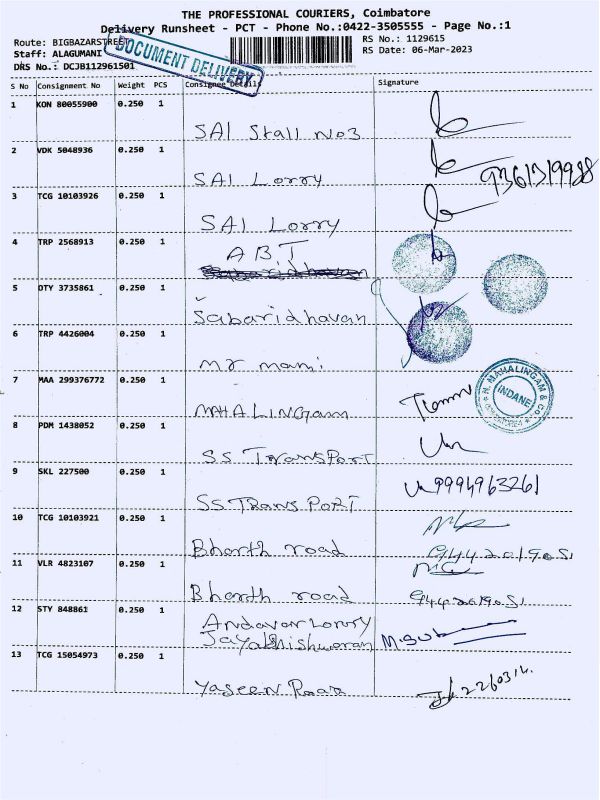 THE PROFESSIONAL COURIERS, Coimbatore
Delivery Runsheet - PCT - Phone No.:0422-3505555 - Page No.:1
Route: BIGBAZARSTREET
RS No.: 1129615
Staff: ALAGUMANI
RS Date: 06-Mar-2023
DRS No.: DCJB112961501
DOCUMENT DELIVERY
S No Consignment No Weight PCS Consignee Details Signature
1 KON 80055900 0.250 1 SAI Stall No3
2 VDK 5048936 0.250 1 SAI Lorry 9361319988
3 TCG 10103926 0.250 1 SAI Lorry
4 TRP 2568913 0.250 1 A.B.T
5 DTY 3735861 0.250 1 Sabaridhavan
6 TRP 4426004 0.250 1 mr mami
7 MAA 299376772 0.250 1 MAHALINGam
N. MAHALINGAM & CO. INDANE
8 PDM 1438052 0.250 1 SS TransPort
9 SKL 227500 0.250 1 SS TRANSPORT 9994963261
10 TCG 10103921 0.250 1 Bharth road 9442019051
11 VLR 4823107 0.250 1 Bharth road 9442019051
12 STY 848861 0.250 1 Andavar Lorry
13 TCG 15054973 0.250 1 Yaseen